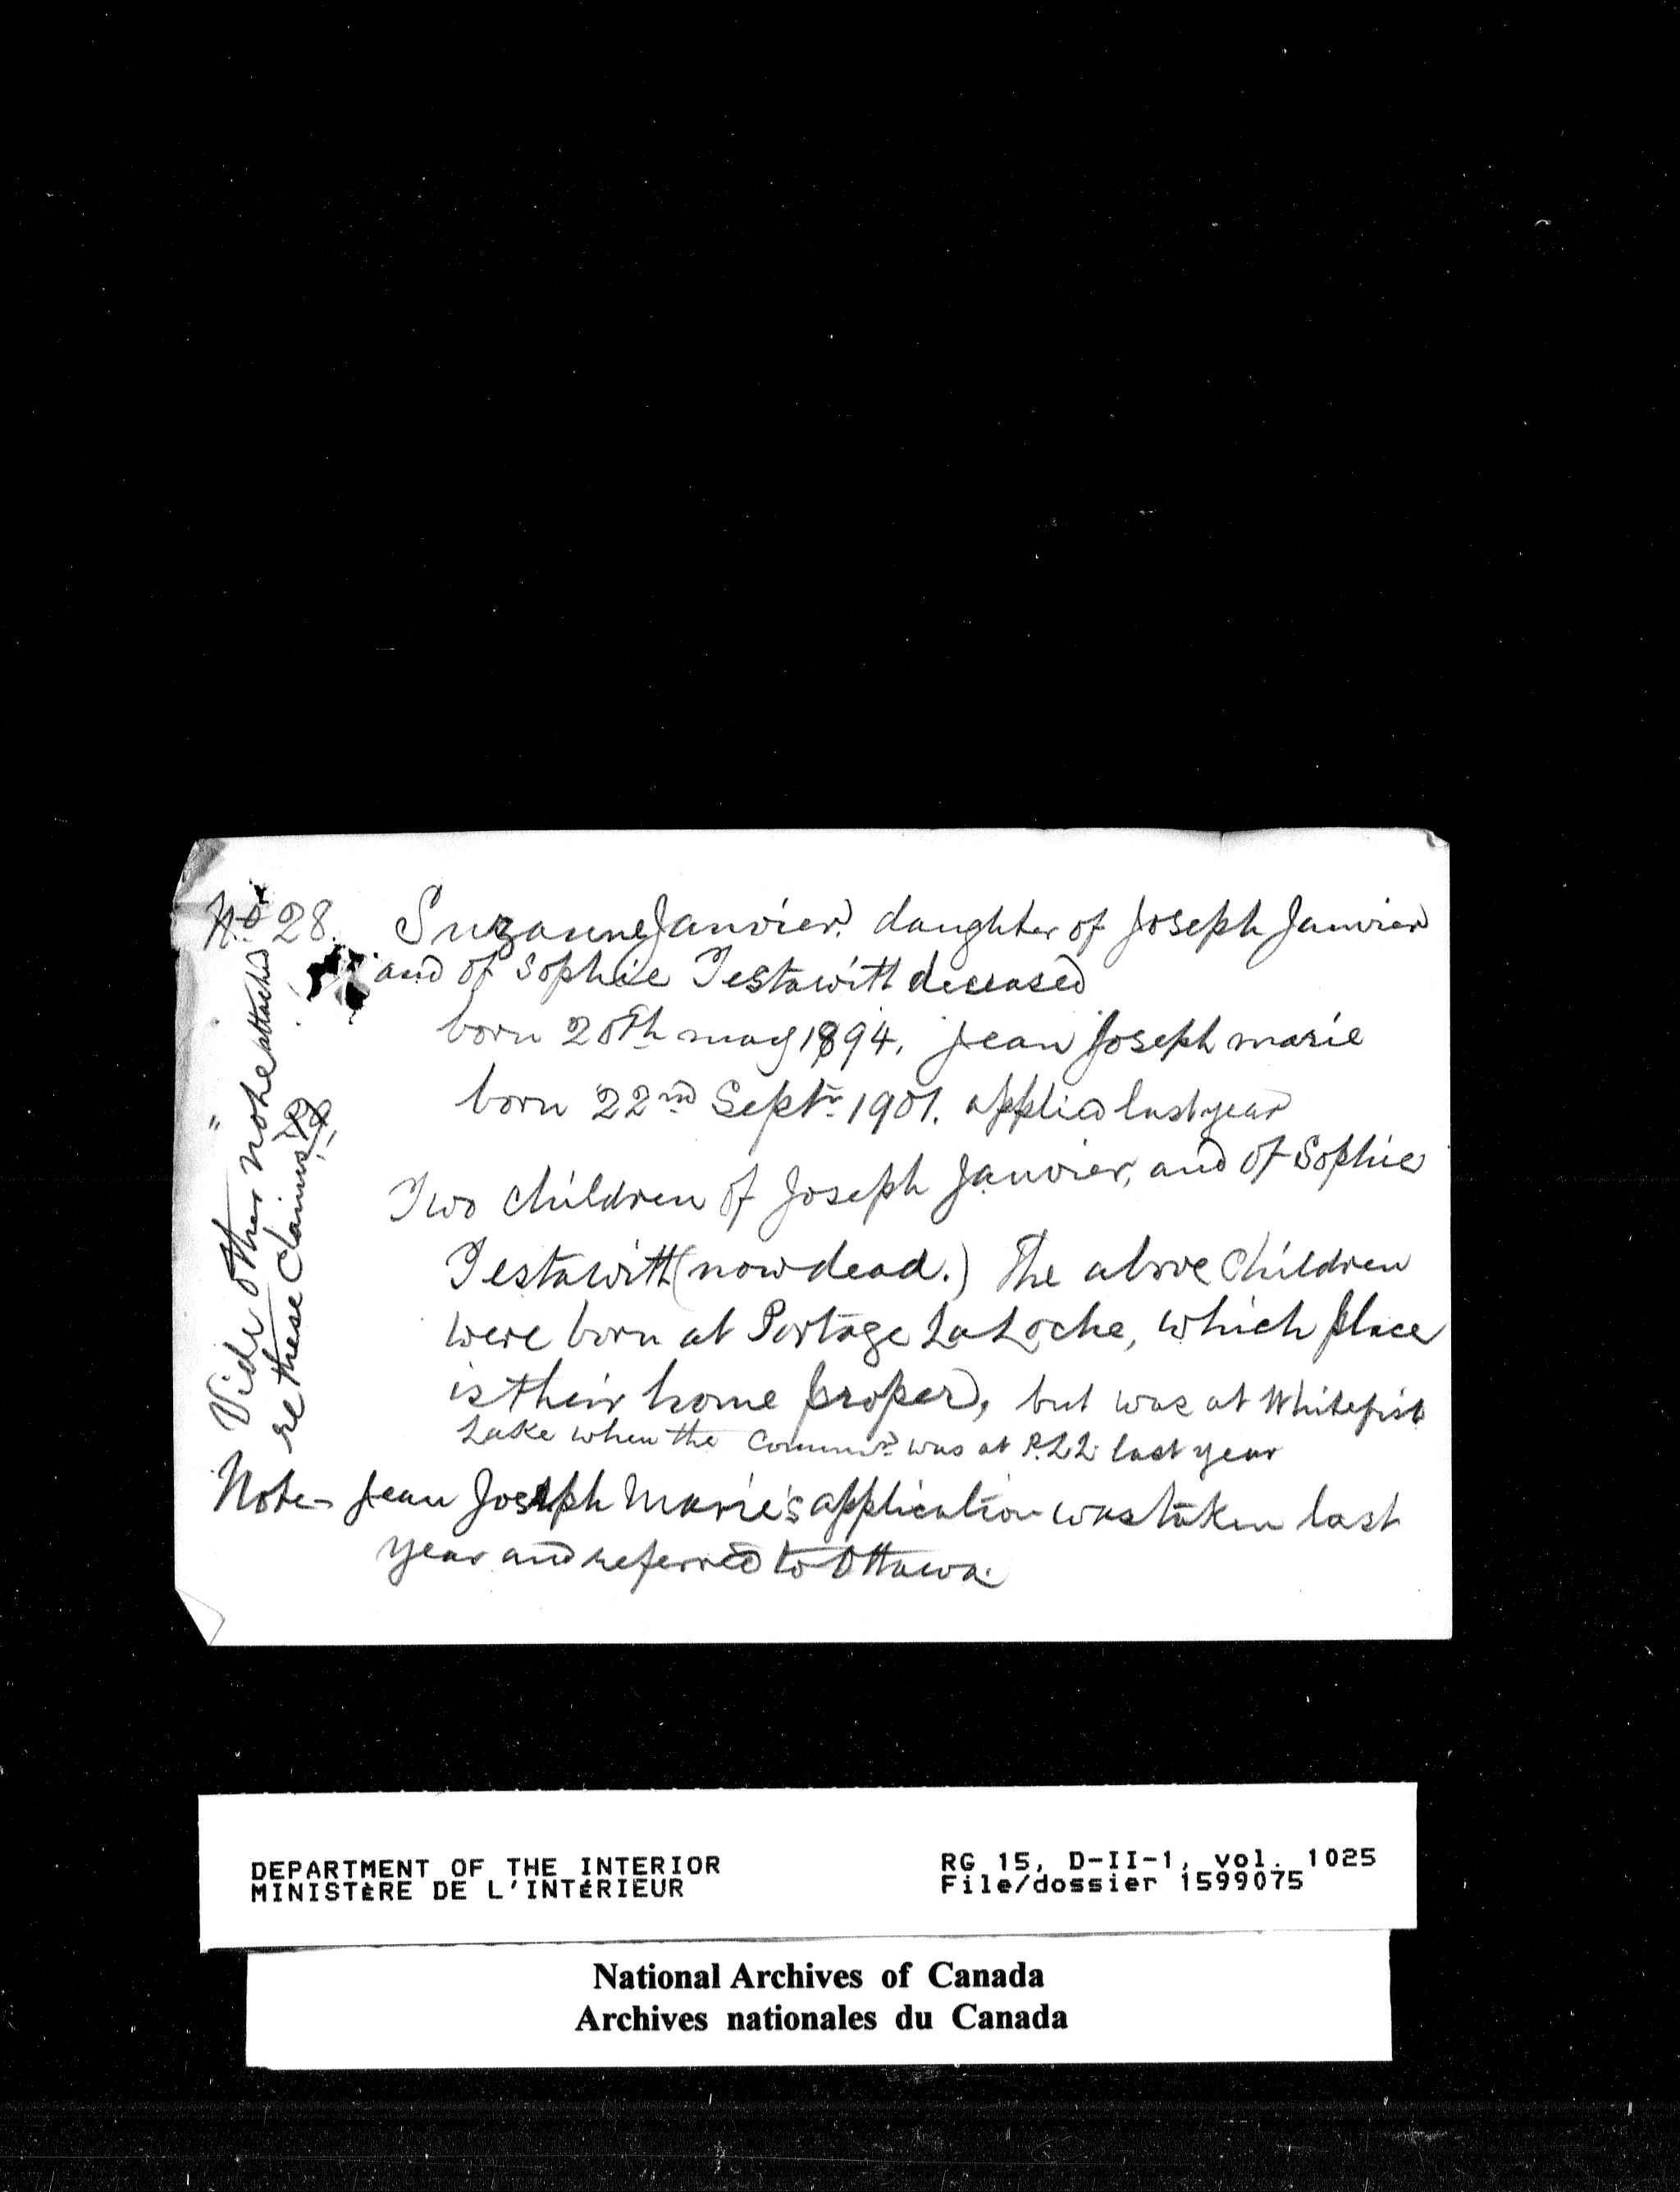 No 28. Suzanne Janvier. daughter of Joseph Janvier
and of Sophie Testawitt deceased
born 20th may 1894. Jean Joseph marie
born 22nd Septr 1901. applied last year
Two children of Joseph Janvier, and of Sophie
Testawitt (now dead.) The above children
were born at Portage La Loche, which place
is their home proper, but was at Whitefish
Lake when the Commr. was at P.L.L. last year
Note - Jean Joseph Marie's application was taken last
year and referred to Ottawa.
" Vide other note attached
re these claims
DEPARTMENT OF THE INTERIOR
MINISTÈRE DE L'INTÉRIEUR
RG 15, D-II-1, vol. 1025
File/dossier 1599075
National Archives of Canada
Archives nationales du Canada